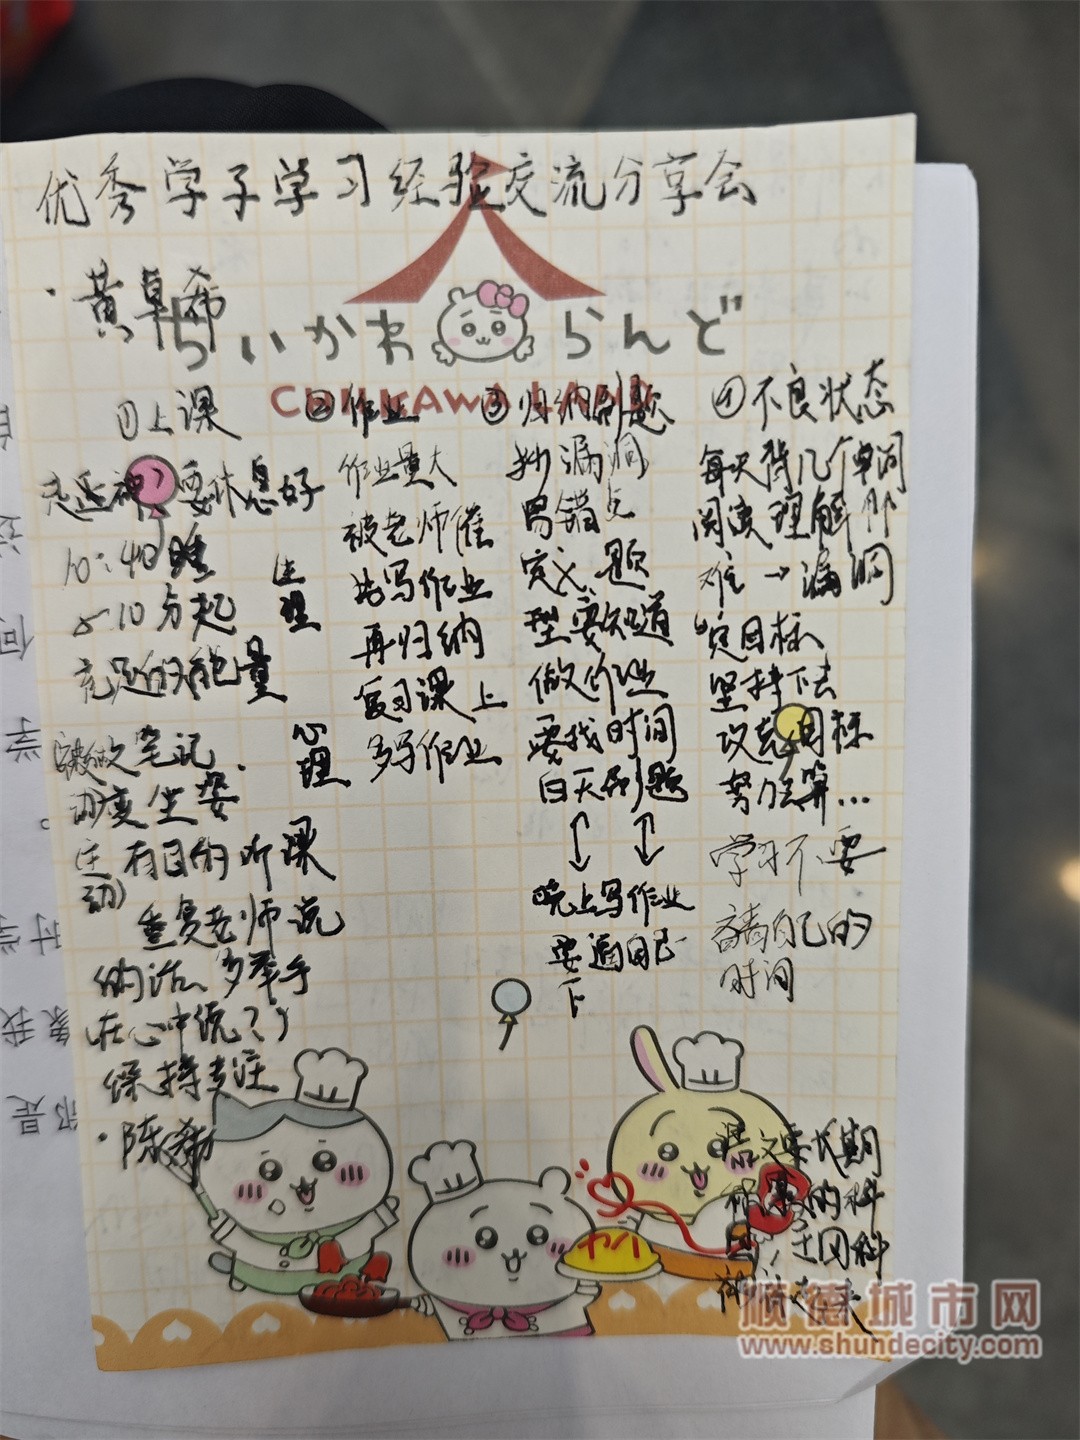 优秀学子学习经验交流分享会
·黄卓希
ちいかわ らんど
CHIIKAWA LAND
①上课
走近神? 要休息好
10:40睡
5-10分起
充足的能量
生理
做笔记
动度坐姿
主动 有目的听课
重复老师说
的话、多举手
(在心中说?)
保持专注
心理
·陈
②作业
作业量大
被老师催
先写作业
再归纳
复习课上
多写作业
③归纳刷题
抄漏洞
易错点
定义、题
型要知道
做作业
要找时间
白天刷题
晚上写作业
要逼自己
一下
④不良状态
每天背几个单词
阅读理解那
难→漏洞
定目标
坚持下去
攻克目标
努力去算...
学习不要
吝啬自己的
时间
语文是长期
积累的科
目
顺德城市网
www.shundecity.com